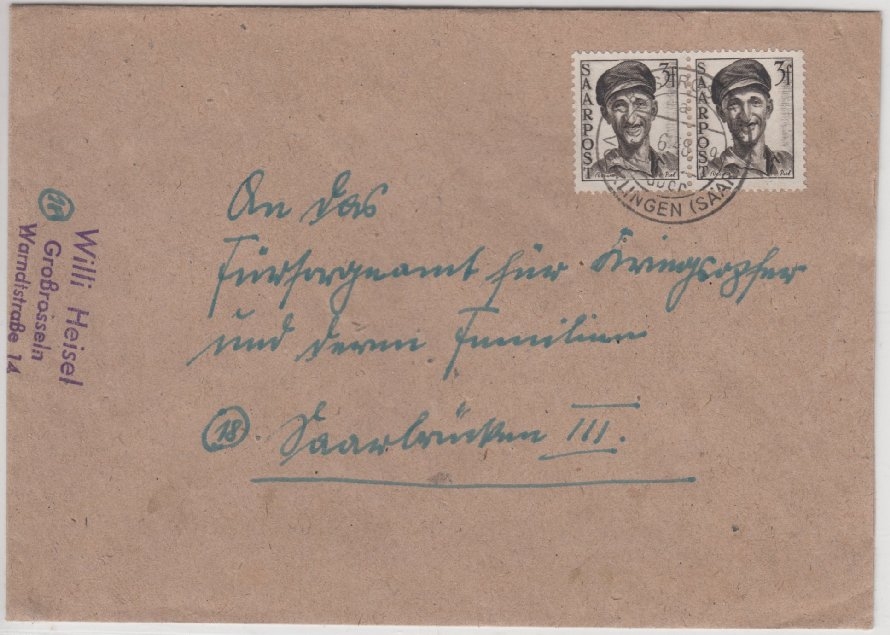 SAARPOST 3f
SAARPOST 3f
LINGEN (SAAR
Willi Heisel
Großrosseln
Warndtstraße 14
An das
Fürsorgeamt für Kriegsopfer
und deren Familien
18. Saarbrücken III.